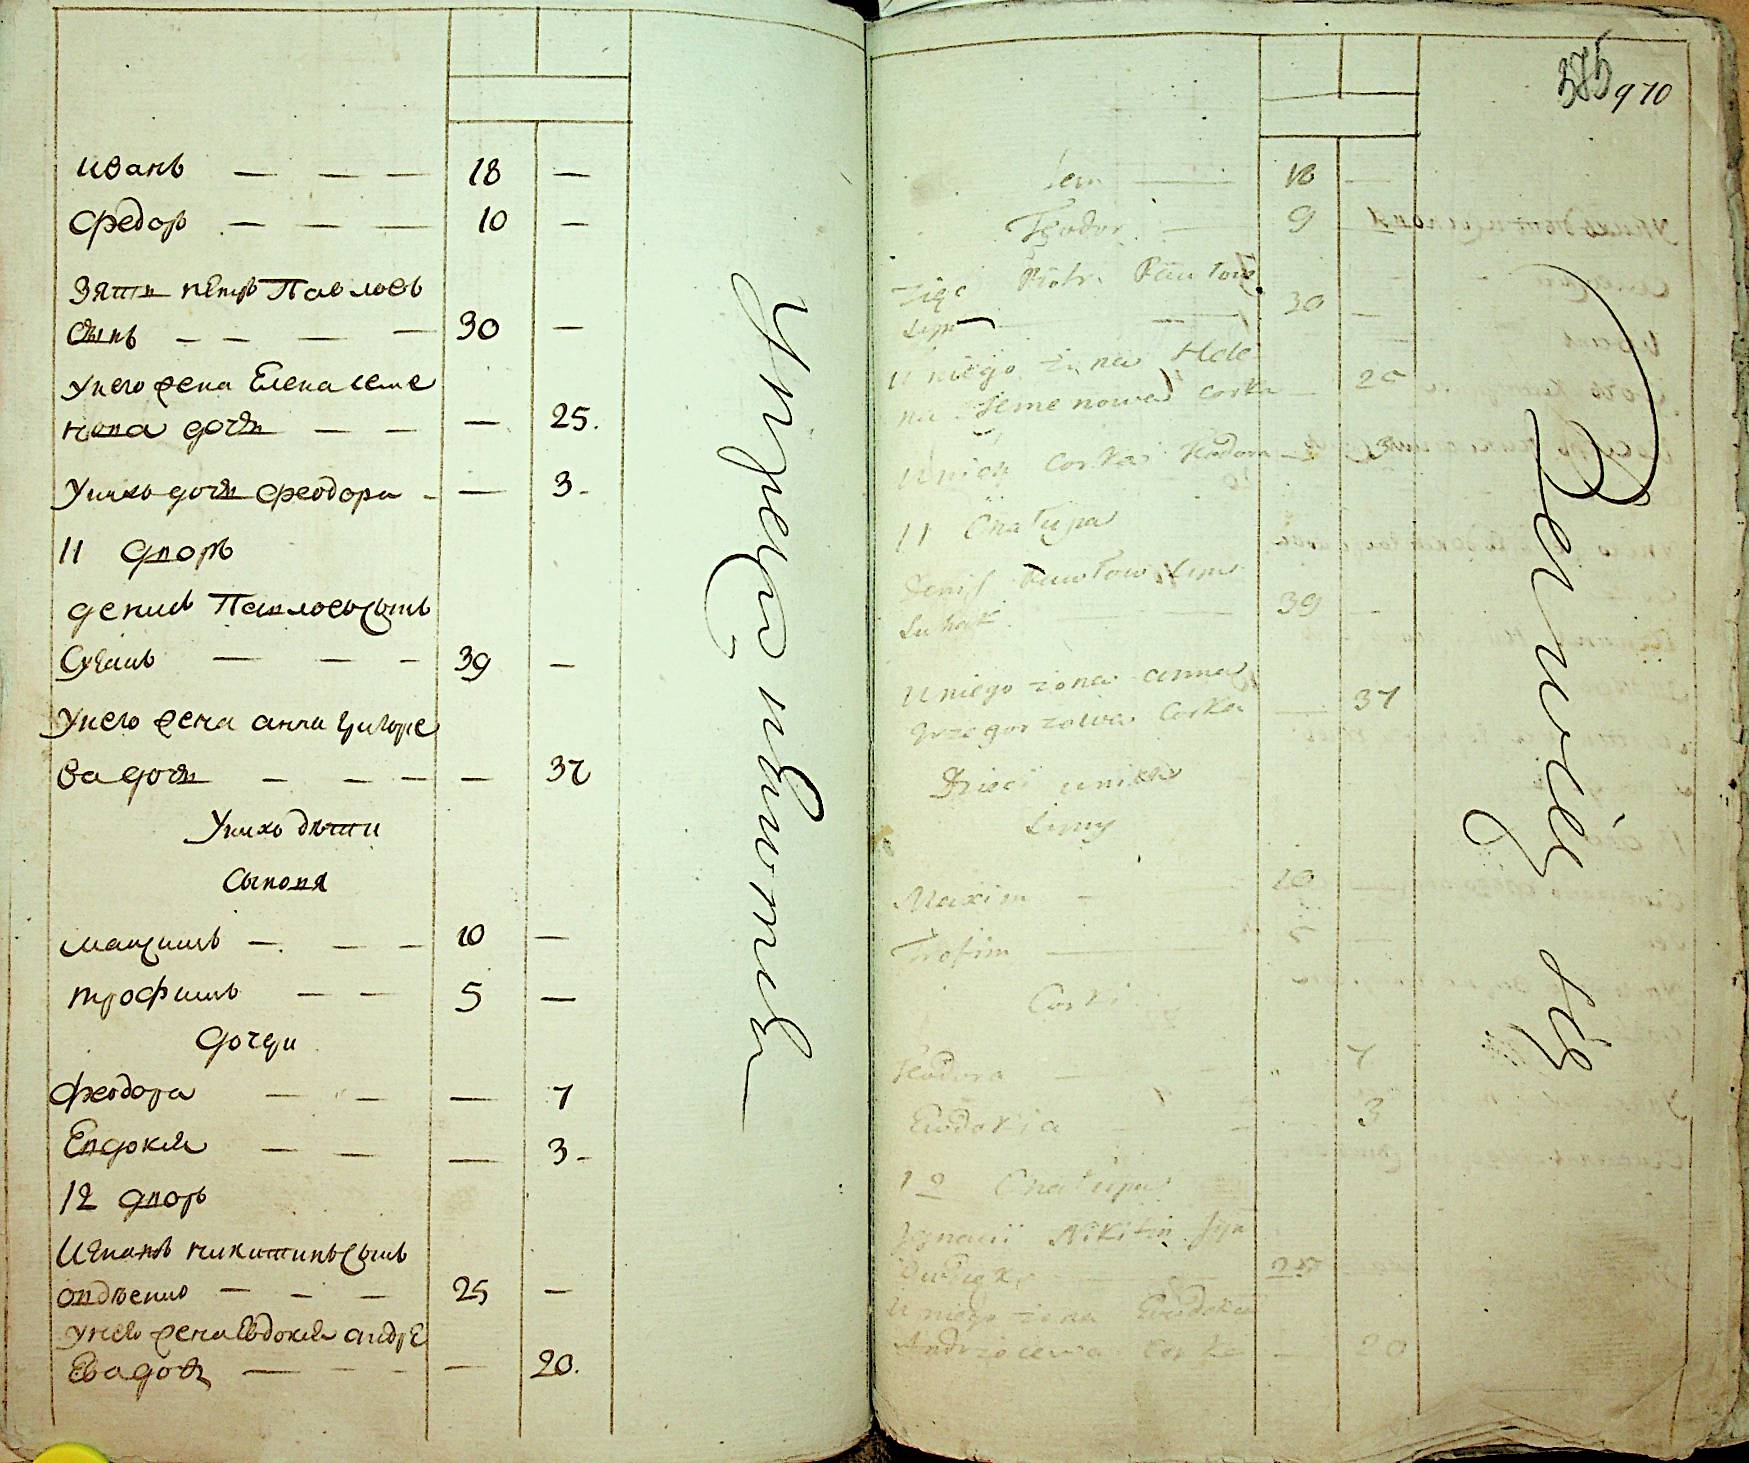 иванъ — — — 18 —
Федоръ — — — 10 —
Зять петръ Павловъ
сынъ — — — — 30 —
унего жена Елена семе
нова дочь — — — 25.
унихъ дочь Феодора - — 3-
11 дворъ
денисъ Павловъ сынъ
— — — 39 —
унего жена анна григоре
ва дочь — — — — 37
унихъ дѣти
сыновя
максимъ — — — 10 —
трофимъ — — 5 —
дочери
Феодора — — — 7
Евдокия — — — 3-
12 дворъ
Игнатъ никитинъ сынъ
— — — 25 —
унего жена Евдокия андре
Ева дочь — — — — 20.
970
18 —
Teodor — 9
Zięc Piotr Pawłow
Syn — — 30 —
U niego żona Hele
na Semenowa Corka — 25
U nich Corka Teodora — 3
11 Chałupa
Denis Pawłow Syn
— — 39 —
U niego żona anna
Grzegorzowa Corka — 37
Dzieci u nich
Syny
Maxim - 10 —
Trofim — 5 —
Corki
Teodora — 7
Ewdokia - 3
12 Chałupa
Ignacii Nikitin Syn
— 25 —
U niego żona Ewdokia
Andrzeiewa Corka — 20